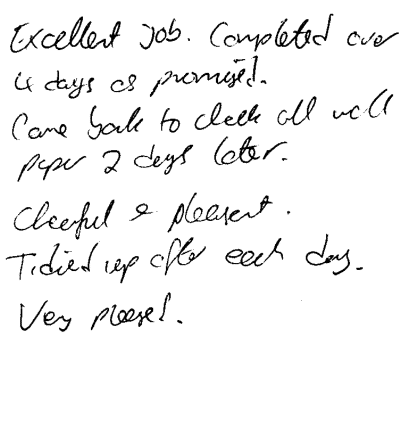 Excellent Job. Completed over
4 days as promised.
Came back to check all wall
paper 2 days later.
Cheerful & pleasant.
Tidied up after each day.
Very pleased.